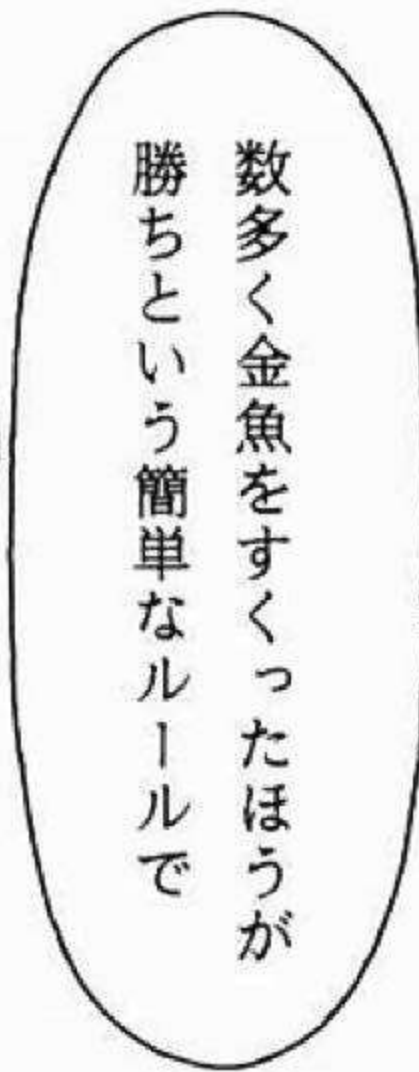 数多く金魚をすくったほうが
勝ちという簡単なルールで